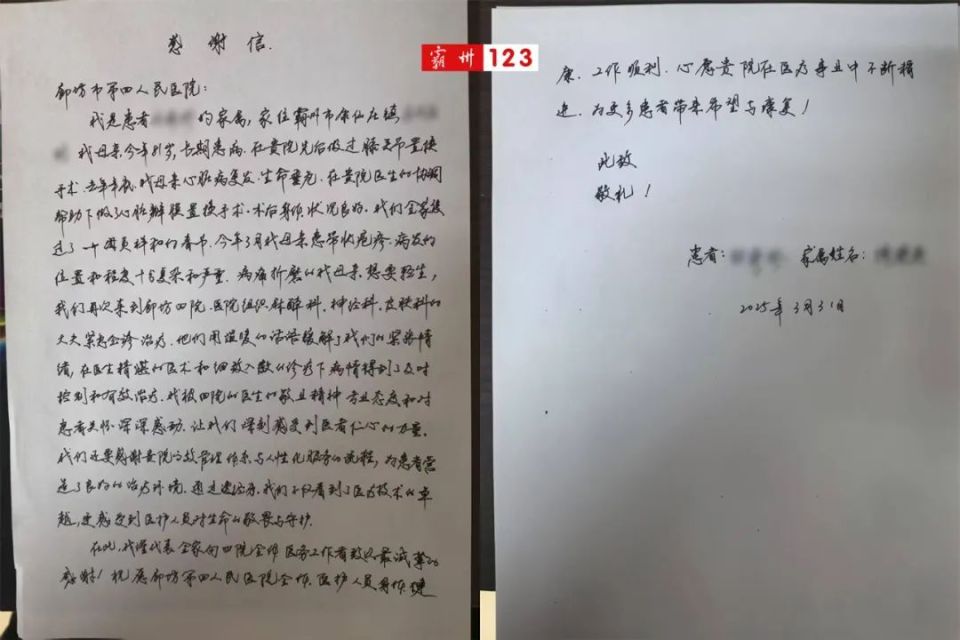 感谢信.
霸州123
廊坊市第四人民医院:
我是患者 的家属,家住霸州市康仙庄镇
我母亲今年81岁,长期患病.在贵院先后做过膝关节置换
手术.去年年底,我母亲心脏病复发.生命垂危.在贵院医生的协调
帮助下做了心脏瓣膜置换手术.术后身体状况良好.我们全家度
过了一个团员祥和的春节.今年3月我母亲患带状疱疹.病发的
位置和程度十分复杂和严重.病痛折磨的我母亲想要轻生,
我们再次来到廊坊四院.医院组织麻醉科.神经科.皮肤科的
大夫紧急会诊治疗.他们用温暖的话语缓解了我们的紧张情
绪,在医生精湛的医术和细致入微的诊疗下病情得到了及时
控制和有效治疗.我被四院的医生的敬业精神专业态度和对
患者关怀深深感动.让我们深刻感受到医者仁心的力量.
我们还要感谢贵院高效管理体系与人性化服务的流程,为患者营
造了良好的治疗环境.通过这经历.我们不仅看到了医疗技术的卓
越,更感受到医护人员对生命的敬畏与守护.
在此,我谨代表全家向四院全体医务工作者致以最诚挚的
感谢!祝愿廊坊第四人民医院全体.医护人员身体健
康.工作顺利.心愿贵院在医疗事业中不断精
进.为更多患者带来希望与康复!
此致
敬礼!
患者: 家属姓名:
2025年3月31日